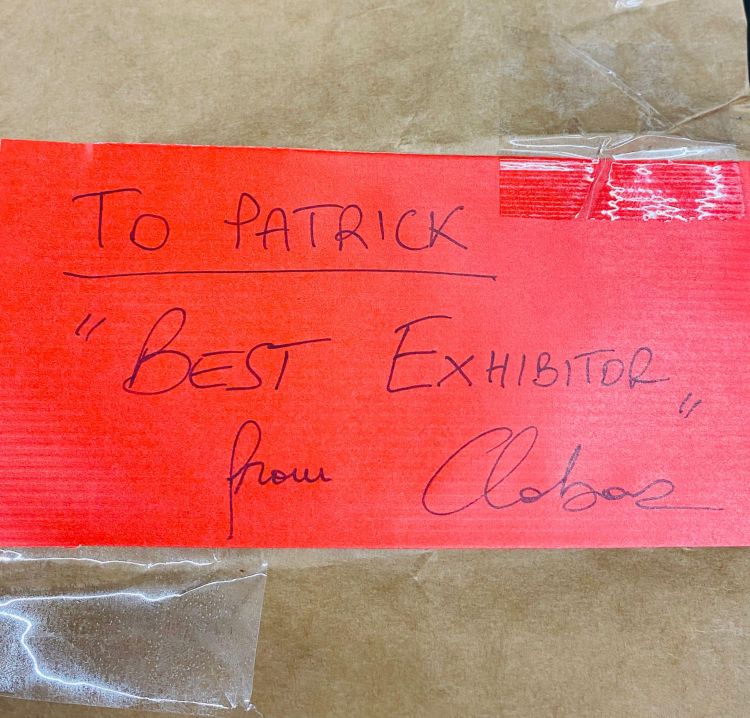 To PATRICK
"BEST EXHIBITOR"
from Clabaz